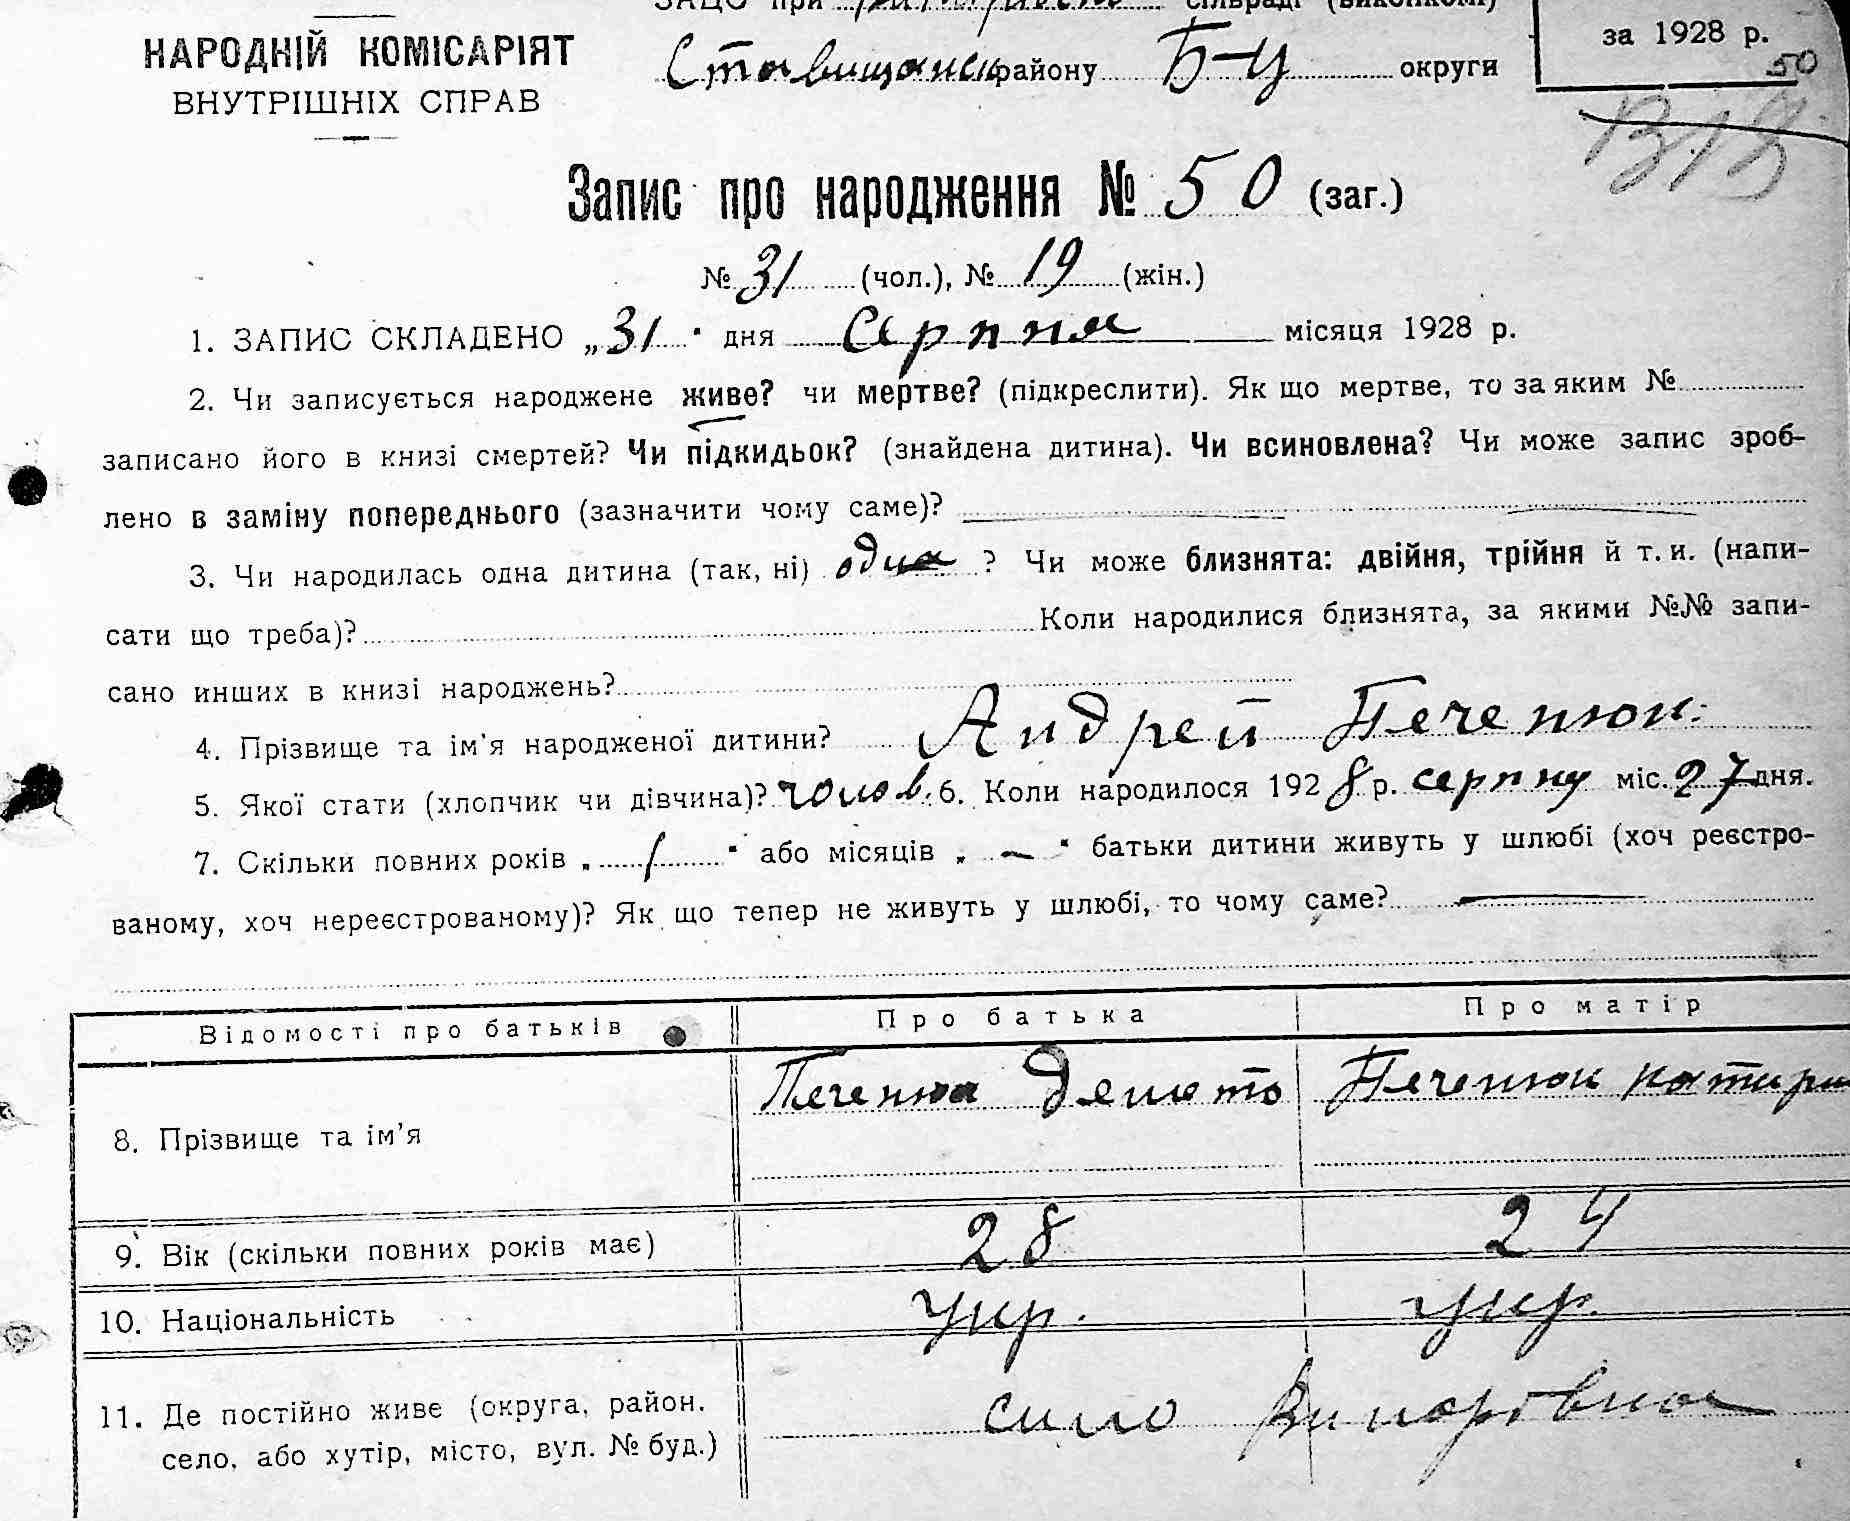 НАРОДНІЙ КОМІСАРІЯТ
ВНУТРІШНІХ СПРАВ
ЗАЦС при сільраді (виконкомі)
Ставищанськ району Б-Ц округи
за 1928 р.
50
Запис про народження № 50 (заг.)
№ 31 (чол.), № 19 (жін.)
1. ЗАПИС СКЛАДЕНО „31" дня Серпня місяця 1928 р.
2. Чи записується народжене живе? чи мертве? (підкреслити). Як що мертве, то за яким №
записано його в книзі смертей? Чи підкидьок? (знайдена дитина). Чи всиновлена? Чи може запис зроб-
лено в заміну попереднього (зазначити чому саме)?
3. Чи народилась одна дитина (так, ні) одна ? Чи може близнята: двійня, трійня й т. и. (напи-
сати що треба)? Коли народилися близнята, за якими №№ запи-
сано инших в книзі народжень?
4. Прізвище та ім'я народженої дитини? Андрей Печенюк
5. Якої стати (хлопчик чи дівчина)? чолов. 6. Коли народилося 1928 р. серпну міс. 27 дня.
7. Скільки повних років „ 1 " або місяців „ — " батьки дитини живуть у шлюбі (хоч реєстро-
ваному, хоч нереєстрованому)? Як що тепер не живуть у шлюбі, то чому саме?
Відомості про батьків Про батька Про матір
8. Прізвище та ім'я Печенюк Печенюк
9. Вік (скільки повних років має) 28 24
10. Національність Укр. Укр.
11. Де постійно живе (округа, район,
село, або хутір, місто, вул. № буд.) село